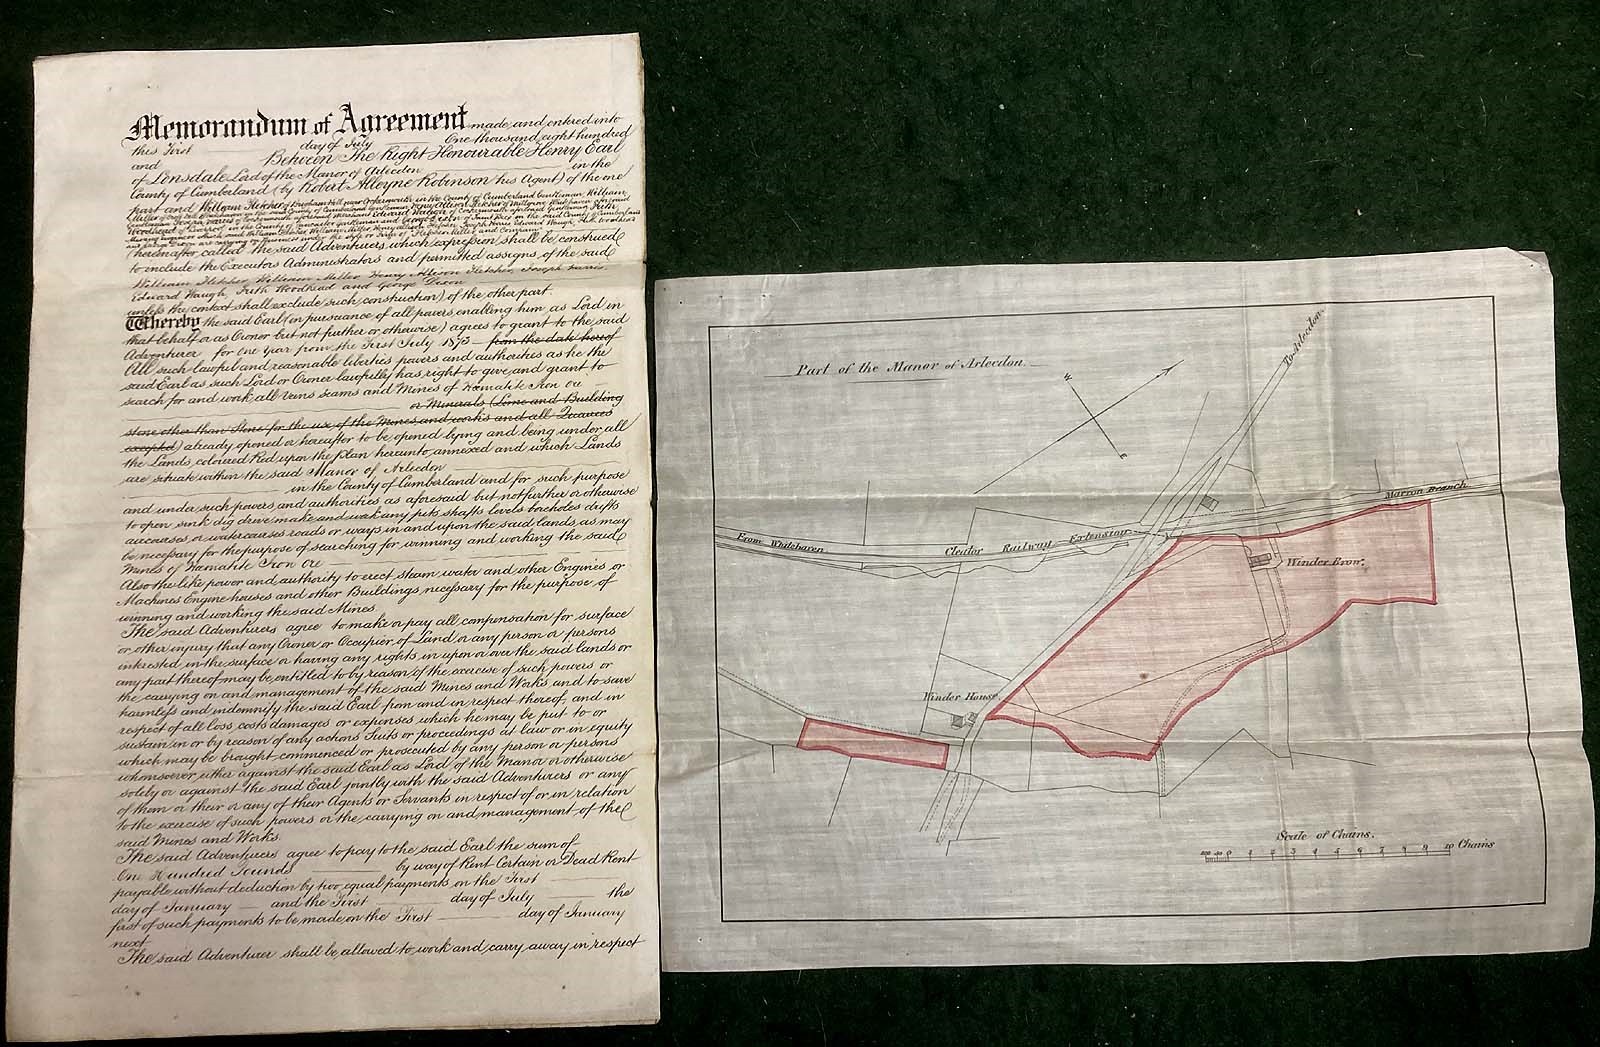 Memorandum of Agreement made and entered into
this First day of July One thousand eight hundred
and Between The Right Honourable Henry Earl
of Lonsdale Lord of the Manor of Arlecdon in the
County of Cumberland (by Robert Alleyne Robinson his Agent) of the one
part and William Fletcher of Brigham Hill near Cockermouth in the County of Cumberland Gentleman, William
Miller of Whitehaven in the said County of Cumberland Gentleman Henry Allison Fletcher of
Gentleman Joseph of Cockermouth aforesaid Merchant Edward Waugh of Cockermouth aforesaid Gentleman Frith
Woodhead of Liverpool in the County of Lancaster Gentleman and George Dixon of in the said County of Cumberland
Mining Engineer which said William Fletcher William Miller Henry Allison Fletcher Joseph Edward Waugh Frith Woodhead
and George Dixon are carrying on Business under the style or Firm of Fletcher Miller and Company
(hereinafter called the said Adventurers, which expression shall be construed
to include the Executors Administrators and permitted assigns of the said
William Fletcher, William Miller Henry Allison Fletcher, Joseph
Edward Waugh, Frith Woodhead and George Dixon
unless the context shall exclude such construction) of the other part.
Whereby the said Earl (in pursuance of all powers enabling him as Lord in
that behalf or as Owner but not further or otherwise) agrees to grant to the said
Adventurer for one Year from the First July 1873 from the date hereof
All such lawful and reasonable liberties powers and authorities as he the
said Earl as such Lord or Owner lawfully has right to give and grant to
search for and work all Veins seams and Mines of Hæmatite Iron ore
or Minerals (Lime and Building
stone other than Stone for the use of the Mines and works and all Quarries
excepted) already opened or hereafter to be opened lying and being under all
the Lands coloured Red upon the plan hereunto annexed and which Lands
are situate within the said Manor of Arlecdon
in the County of Cumberland and for such purpose
and under such powers and authorities as aforesaid but not further or otherwise
to open sink dig drive make and work any pits shafts levels boreholes drifts
aircourses or watercourses roads or ways in and upon the said lands as may
be necessary for the purpose of searching for winning and working the said
Mines of Hæmatite Iron ore
Also the like power and authority to erect steam water and other Engines or
Machines Engine houses and other Buildings necessary for the purpose of
winning and working the said Mines.
The said Adventurers agree to make or pay all compensation for surface
or other injury that any Owner or Occupier of Land or any person or persons
interested in the surface or having any rights in upon or over the said lands or
any part thereof may be entitled to by reason of the exercise of such powers or
the carrying on and management of the said Mines and Works and to save
harmless and indemnify the said Earl from and in respect thereof, and in
respect of all loss, costs damages or expenses which he may be put to or
sustain in or by reason of any actions Suits or proceedings at law or in equity
which may be brought commenced or prosecuted by any person or persons
whomsoever either against the said Earl as Lord of the Manor or otherwise
solely or against the said Earl jointly with the said Adventurers or any
of them or their or any of their Agents or Servants in respect of or in relation
to the exercise of such powers or the carrying on and management of the
said Mines and Works.
The said Adventurers agree to pay to the said Earl the sum of
One Hundred Pounds by way of Rent Certain or Dead Rent
payable without deduction by two equal payments on the First
day of January and the First day of July the
first of such payments to be made on the First day of January
next
The said Adventurer shall be allowed to work and carry away in respect
Part of the Manor of Arlecdon.
N
S
To Arlecdon
Marron Branch
From Whitehaven
Cleator Railway Extension
Winder Brow.
Winder House
Scale of Chains.
100 50 0 1 2 3 4 5 6 7 8 9 10 Chains